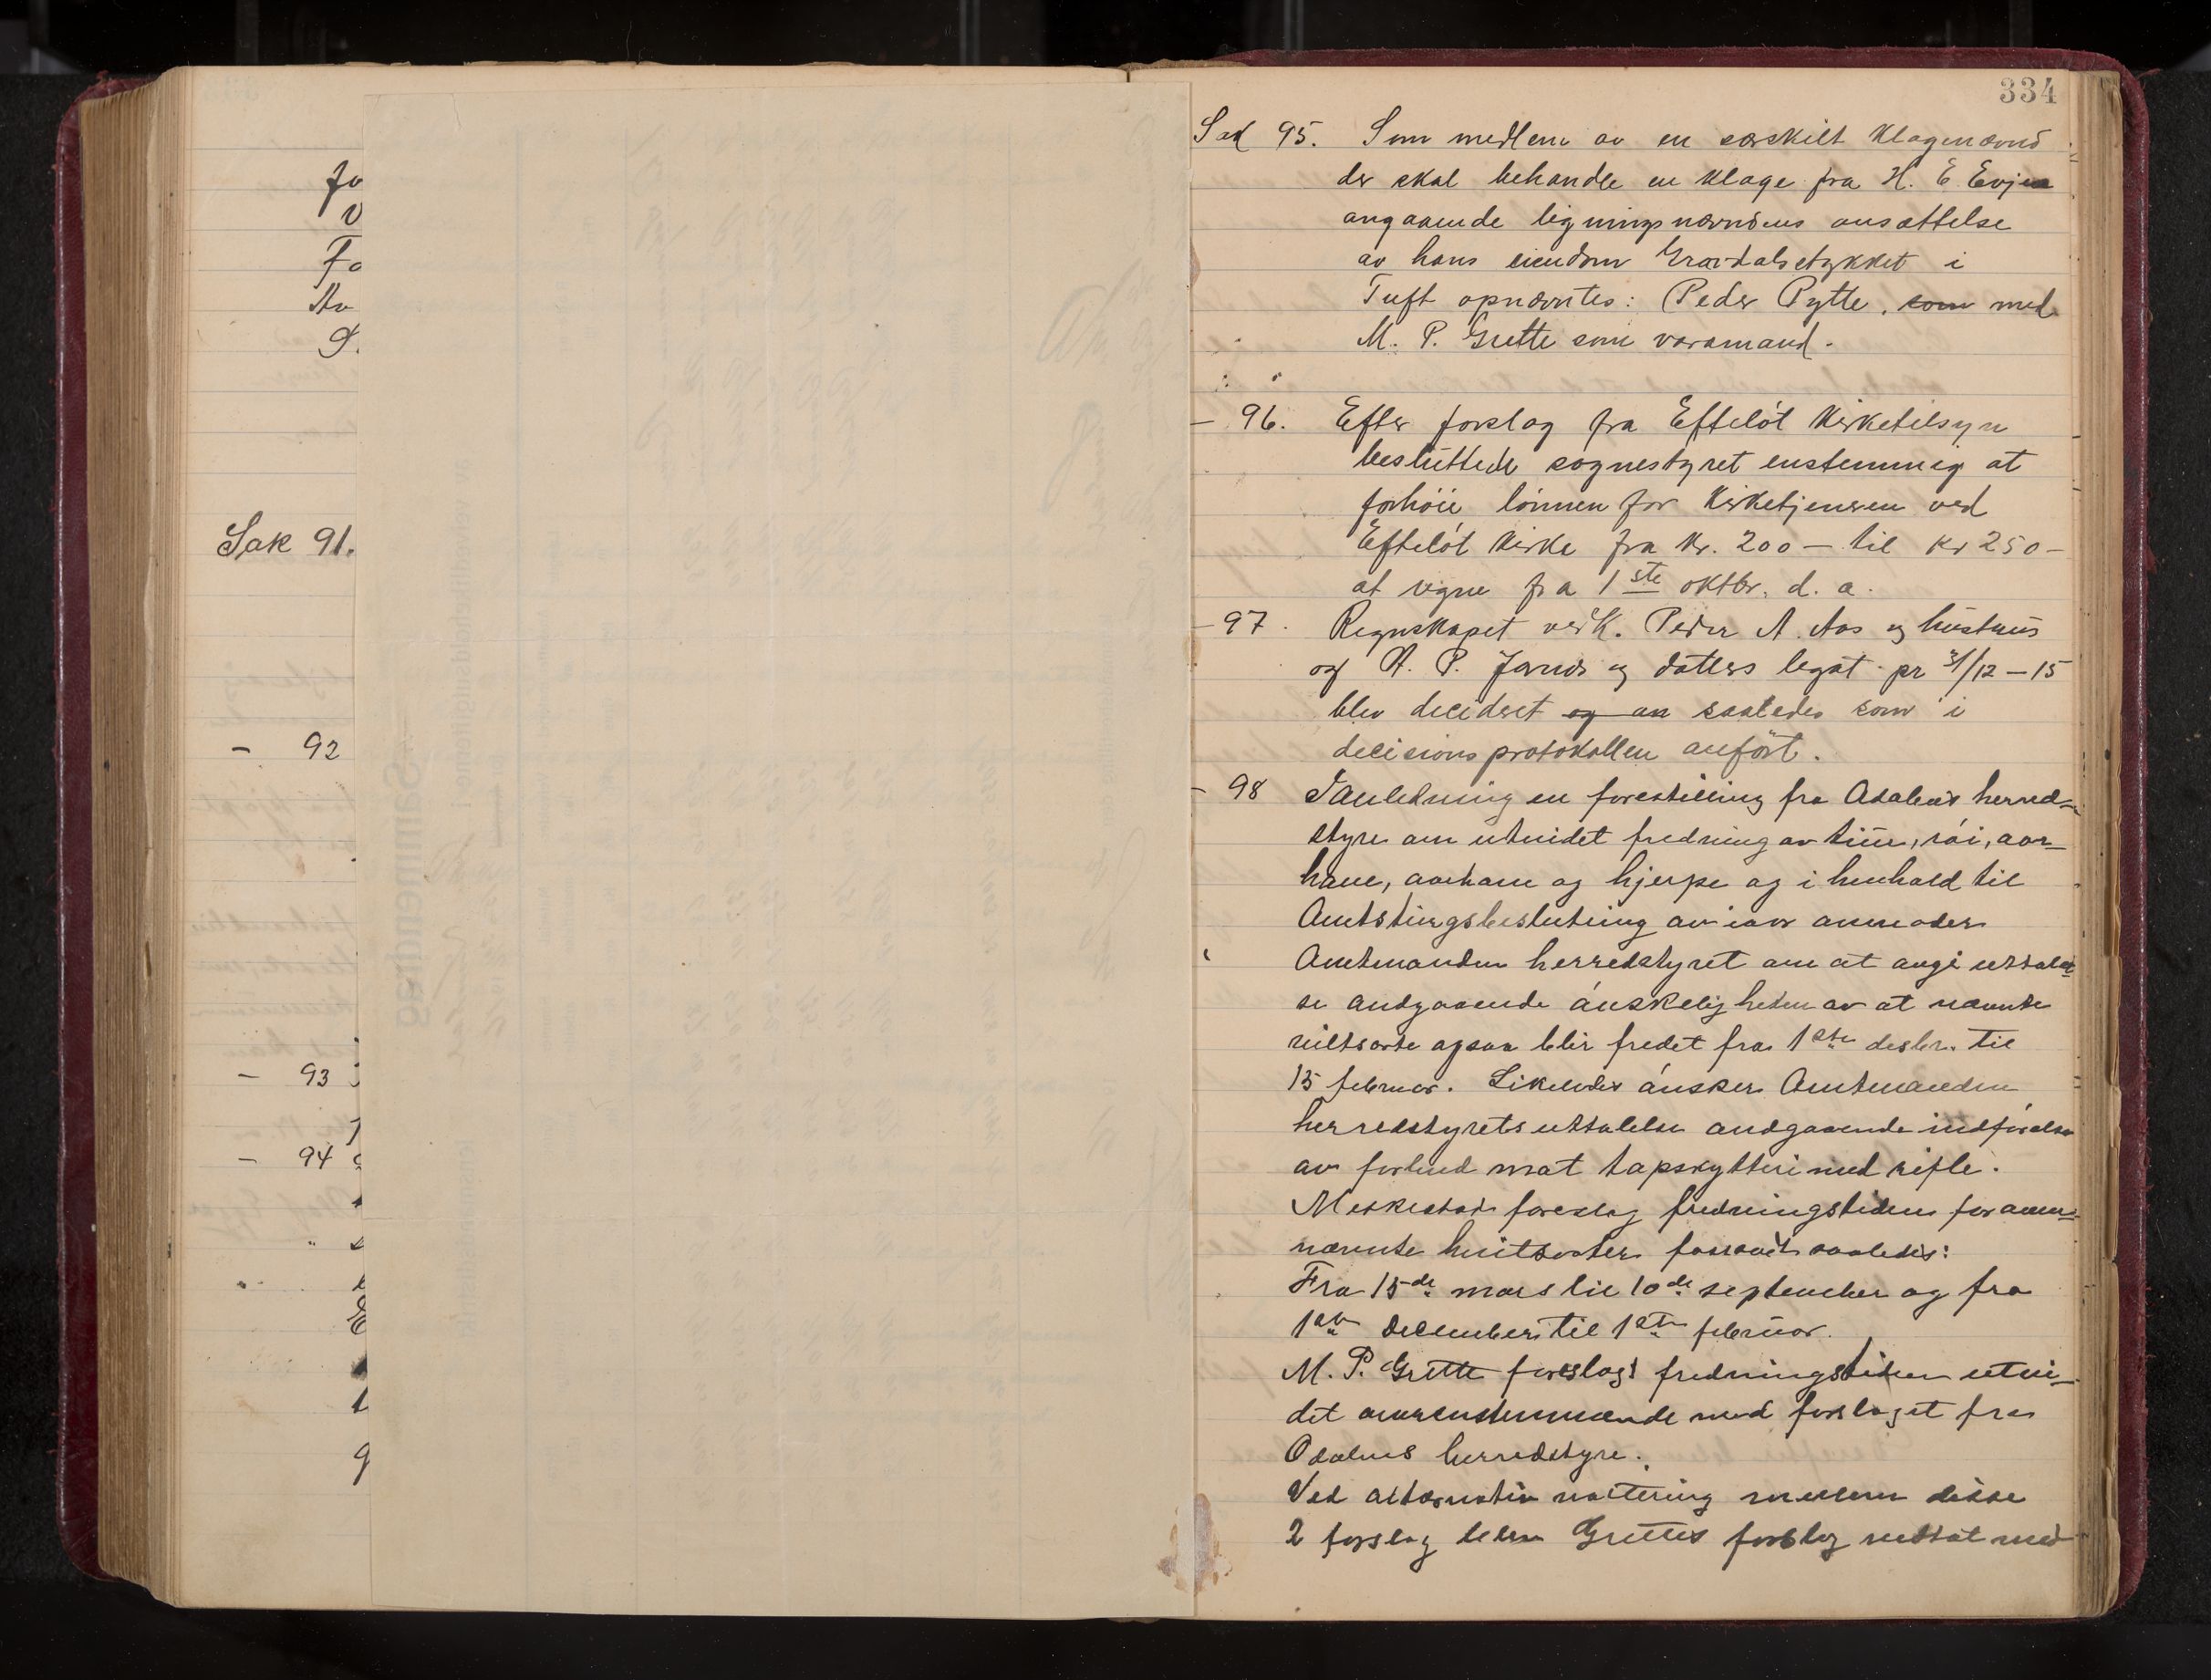 Sak 91.
– 92
– 93
– 94
334
Sak 95. Som medlem av en særskilt klagenævnd
der skal behandle en klage fra H. E. Evjen
angaaende ligningsnævndens ansættelse
av hans eiendom Gravdalstykket i
Tuft opnævntes: Peder Pytte, som med
M. P. Grette som varamand.
– 96. Efter forslag fra Efteløt kirketilsyn
besluttede sognestyret enstemmig at
forhöie lönnen for kirketjeneren ved
Efteløt kirke fra kr. 200 – til kr 250 –
at regne fra 1ste oktbr. d. a.
– 97. Regnskapet vedk. Peder A. Aas og hustrus
og A. P. Joruds og datters legat pr 31/12 – 15
blev decideret og an saaledes som i
decisionsprotokollen anført.
– 98 I anledning en forestilling fra Aadalens herred-
styre om utvidet fredning av tiur, röi, aar-
hane, aarhøne og hjerpe og i henhold til
Amtstingsbeslutning av iaar anmoder
Amtmanden herredstyret om at avgi uttalel-
se andgaaende ønskeligheten av at nævnte
viltsorte ogsaa blir fredet fra 1ste desbr. til
15 februar. Likeledes ønsker Amtmanden
herredstyrets uttalelse andgaaende indførelse
av forbud mot tapskytteri med rifle.
foreslog fredningstiden for oven-
nævnte saaledes:
Fra 15de mars til 10de september og fra
1ste december til 1ste februar.
M. P. Grette foreslog fredningstiden utvi-
det overensstemmende med forslaget fra
Odalens herredstyre.
Ved alternativ votering mellem disse
2 forslag blev Grettes forslag vedtat med